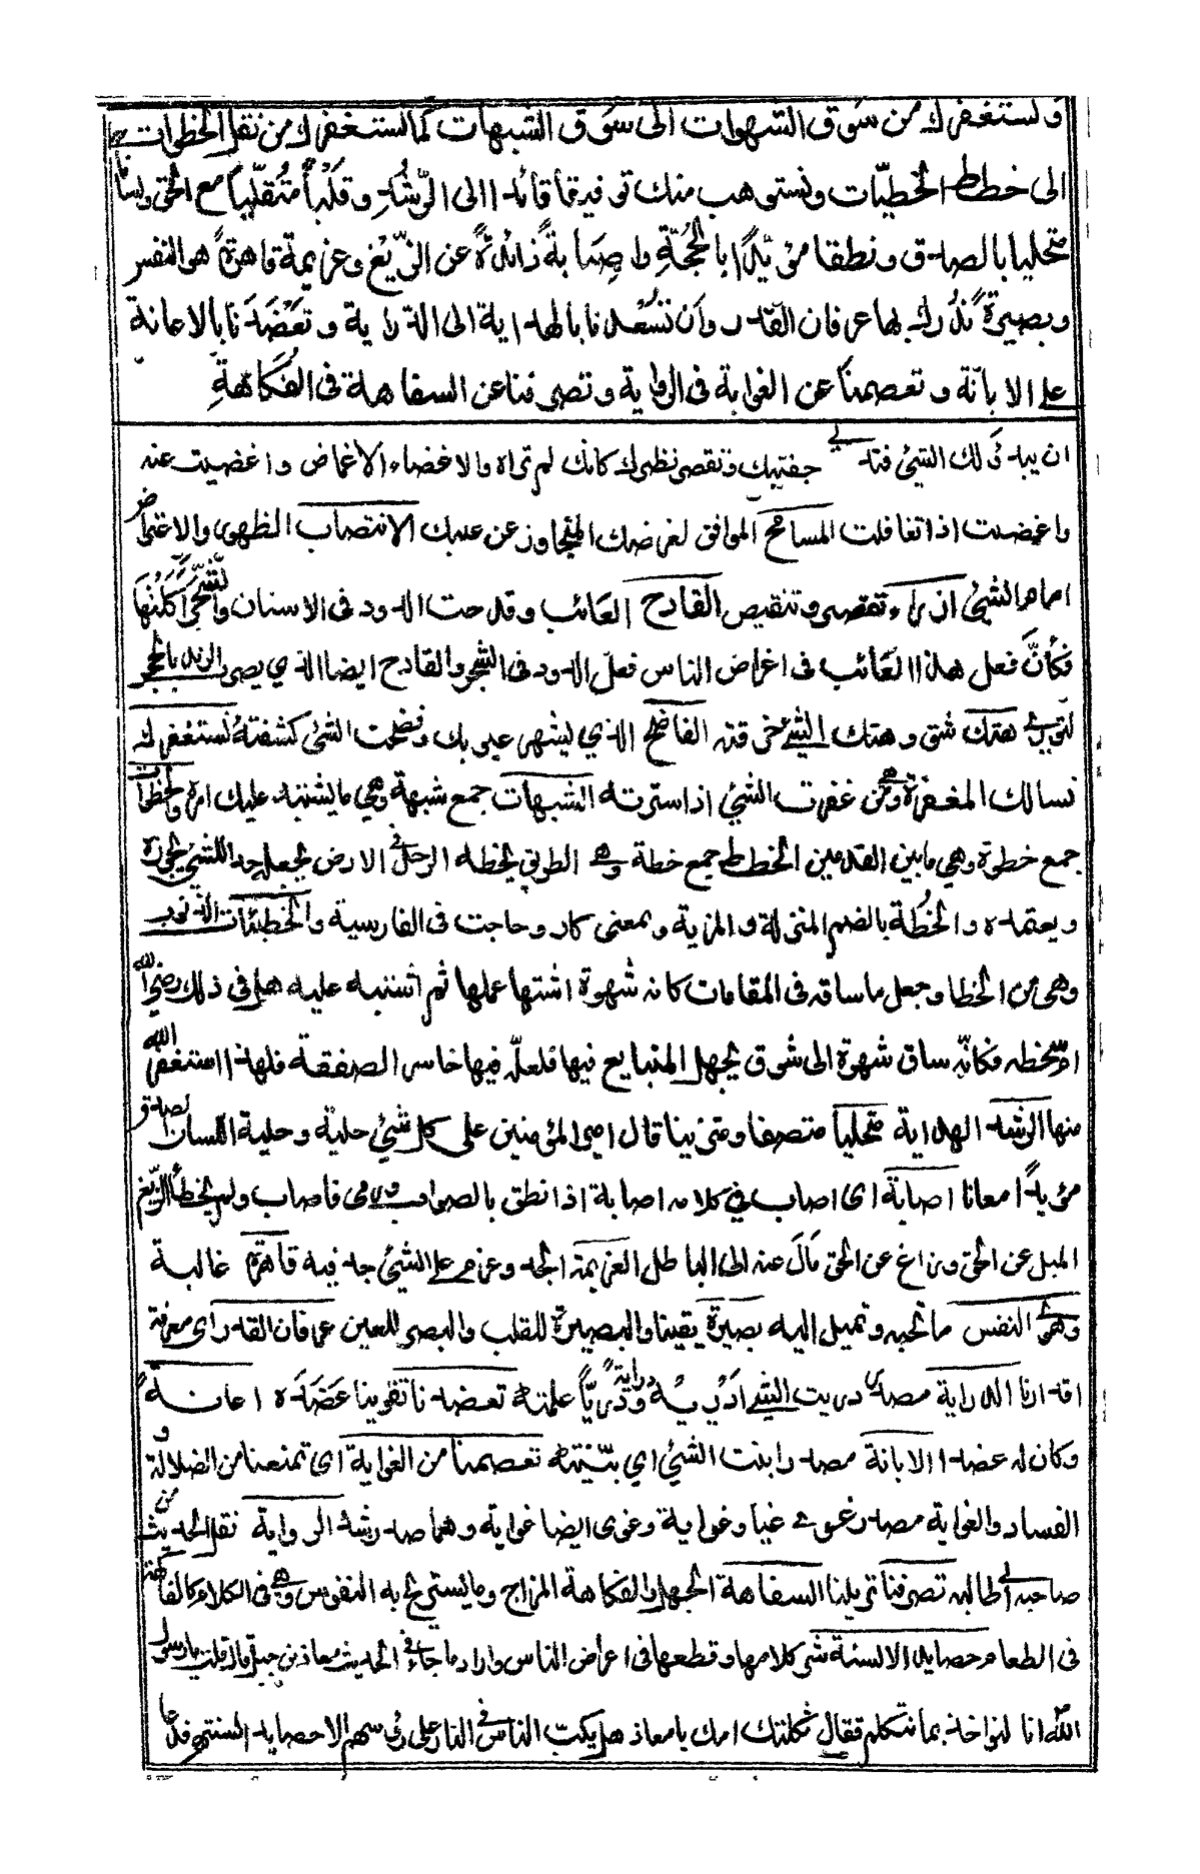 ونستغفرك من سوق الشهوات الى سوق الشبهات كما نستغفرك من نقل الخطوات
الى خطط الخطيّات ونستوهب منك توفيقا قائدا الى الرُّشدِ وقلْباً مُتقلّباً مع الحق ولسانا
متحليا بالصدق ونطقا مؤيّدًا بالحُجّةِ واِصَابةً ذائدةً عن الزّيْغ وعزيمة قاهرةً هو النفس
وبصيرةً نُدْرك بها عرفان القدر وأن تُسْعدنا بالهداية الى الدراية وتَعْضدَنا بالاعانة
على الابانة وتعصمنا عن الغواية فى الرواية وتصرفنا عن السفاهة فى الفُكَاهةِ
ان يبد ذلك الشيئ فتدنى جفنيك وتقصر نظرك كانك لم تراه والاغضاء الاغماض واغضيت عنه
واغمضت اذا تغافلت المسامح الموافق لغرضك المتجاوز عن عيبك الانتصاب الظهور والاعتراض
امام الشيئ ازراء تقصير وتنقيص القادح العائب وقدحت الدود فى الاسنان والشجر اكلتها
فكأنّ فعل هذا العائب فى اعراض الناس فعل الدود فى الشجر والقادح ايضا الذي يصر الزند بالحجر
لتورى هتك شق وهتك الشئ خرقته الفاضح الذي يشهر عيوبك وفضحت الشئ كشفته نستغفرك
نسالك المغفرة وهى من غفرت الشيئ اذا سترته الشبهات جمع شبهة وهي ما يشتبه عليك امره والخطوات
جمع خطوة وهي ما بين القدمين الخطط جمع خطة وهى الطريق يخطه الرجل فى الارض يجعلها حدا للشيئ يحوزه
ويعتمده والخُطّة بالضم المنزلة والمزية وبمعنى كار وحاجت فى الفارسية والخطيّات الذنوب
وهى من الخطا وجعل ما ساقه فى المقامات كانه شهوة اشتها عملها ثم اشتبه عليه هل فى ذلك رضى الله
او سخطه فكانّه ساق شهوة الى سوق يجهل المتبايع فيها فلعلّه فيها خاسر الصفقة فلهذا استغفر الله
منها الرشد الهداية متحلياً متصفا ومتزينا قال امير المؤمنين على كل شيئ حلية وحلية اللسان الصدق
مؤيداً معانا اصابة اى اصاب في كلامه اصابة اذا نطق بالصواب ورمى فاصاب ولم يخطأ الزيغ
الميل عن الحق وزاغ عن الحق مَالَ عنه الى الباطل العزيمة الجد وعزم على الشيئ جد فيه قاهرة غالبة
وهوى النفس ما تحبه وتميل اليه بصيرة يقينا والبصيرة للقلب والبصر للعين عرفان القدر اى معرفة
اقدارنا الدراية مصدر دريت الشئ اَدْريه ودَرْيًا ودرايةً علمته تعضدنا تقوينا عَضَدَه اعانةً
وكان له عضدا الابانة مصدر ابنت الشيئ اي بيّنته تعصمنا من الغواية اي تمنعنا من الضلالة و
الفساد والغواية مصدر غوى غيا وغواية وغوى ايضا غواية وهما ضد رشد الرواية نقل الحديث من
صاحبه الى طالبه تصرفنا تزيلنا السفاهة الجهل والفكاهة المزاح وما يستريح به النفوس وهى فى الكلام كالفاكهة
فى الطعام حصايد الالسنة شر كلامها وقطعها فى اعراض الناس واراد ما جاء فى الحديث معاذ بن جبل قال قلت يا رسول
الله انا لنواخذ بما نتكلم فقال ثكلتك امك يا معاذ هل يكب الناس فى النار على رؤسهم الا حصايد السنتهم فدعا